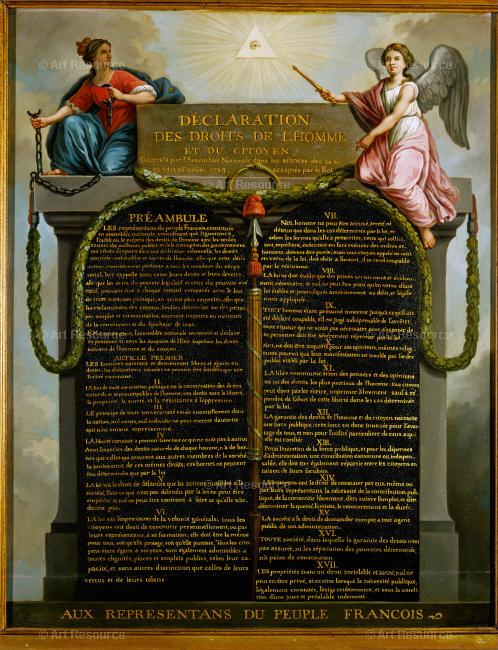 DÉCLARATION
DES DROITS DE L'HOMME
ET DU CITOYEN,
Décrétés par l'Assemblée Nationale dans les séances des 20, 21
acceptés par le Roi
PRÉAMBULE
LES représentans du peuple Francois, constitués
en assemblée nationale, considérant que l'ignorance,
l'oubli ou le mépris des droits de l'homme sont les seules
causes des malheurs publics et de la corruption des gouvernemens
ont résolu d'exposer dans une déclaration solemnelle, les droits
naturels, inaliénables et sacrés de l'homme; afin que cette décla-
ration, constamment présente à tous les membres du corps
social, leur rappelle sans cesse leurs droits et leurs devoirs;
afin que les actes du pouvoir législatif et ceux du pouvoir exé-
cutif, pouvant être à chaque instant comparés avec le but
de toute institution politique, en soient plus respectés; afin que
les réclamations des citoyens, fondées désormais sur des princi-
pes simples et incontestables, tournent toujours au maintien
de la constitution et du bonheur de tous.
EN conséquence, l'assemblée nationale reconnoit et déclare,
en présence et sous les auspices de l'Être suprême les droits
suivans de l'homme et du citoyen.
ARTICLE PREMIER.
LES hommes naissent et demeurent libres et égaux en
droits; les distinctions sociales ne peuvent être fondées que sur
l'utilité commune.
II.
LE but de toute association politique est la conservation des droits
naturels et imprescriptibles de l'homme; ces droits sont la liberté,
la propriété, la sureté, et la résistance à l'oppression.
III.
LE principe de toute souveraineté réside essentiellement dans
la nation, nul corps, nul individu ne peut exercer d'autorité
qui n'en émane expressément.
IV.
LA liberté consiste à pouvoir faire tout ce qui ne nuit pas à autrui
Ainsi, l'exercice des droits naturels de chaque homme, n'a de bor-
nes que celles qui assurent aux autres membres de la société
la jouissance de ces mêmes droits; ces bornes ne peuvent
être déterminées que par la loi.
V.
LA loi n'a le droit de défendre que les actions nuisibles à la
société. Tout ce qui n'est pas défendu par la loi ne peut être
empêché, et nul ne peut être contraint à faire ce qu'elle n'or-
donne pas.
VI.
LA loi est l'expression de la volonté générale; tous les
citoyens ont droit de concourir personnellement, ou par
leurs représentans, à sa formation; elle doit être la même
pour tous, soit qu'elle protege, soit qu'elle punisse. Tous les cito-
yens étant égaux à ses yeux, sont également admissibles à
toutes dignités, places et emplois publics, selon leur ca-
pacité, et sans autres distinction que celles de leurs
vertus et de leurs talens.
VII.
NUL homme ne peut être accusé, arrêté ni
détenu que dans les cas déterminés par la loi, et
selon les formes qu'elle a prescrites, ceux qui sollici-
tent, expédient, exécutent ou font exécuter des ordres ar-
bitraires, doivent être punis; mais tout citoyen appelé ou saisi
en vertu de la loi, doit obéir à l'instant; il se rend coupable
par la résistance.
VIII.
LA loi ne doit établir que des peines strictement et évidem-
ment nécessaires, et nul ne peut être puni qu'en vertu d'une
loi établie et promulguée antérieurement au délit, et légale-
ment appliquée.
IX.
TOUT homme étant présumé innocent jusqu'à ce qu'il ait
été déclaré coupable, s'il est jugé indispensable de l'arrêter,
toute rigueur qui ne seroit pas nécessaire pour s'assurer de
sa personne doit être sévèrement réprimée par la loi.
X.
NUL ne doit être inquiété pour ses opinions, mêmes reli-
gieuses pourvu que leur manifestation ne trouble pas l'ordre
public établi par la loi.
XI.
LA libre communication des pensées et des opinions
est un des droits les plus précieux de l'homme; tout citoyen
peut donc parler, écrire, imprimer librement, sauf à ré-
pondre de l'abus de cette liberté dans les cas déterminés
par la loi.
XII.
LA garantie des droits de l'homme et du citoyen nécessite
une force publique; cette force est donc instituée pour l'avan-
tage de tous, et non pour l'utilité particuliere de ceux à qui
elle est confiée.
XIII.
POUR l'entretien de la force publique, et pour les dépenses
d'administration, une contribution commune est indispen-
sable; elle doit être également répartie entre les citoyens en
raison de leurs facultés.
XIV.
LES citoyens ont le droit de constater par eux mêmes ou
par leurs représentans, la nécessité de la contribution pub-
lique, de la consentir librement, d'en suivre l'emploi, et d'en
déterminer la quotité, l'assiette, le recouvrement et la durée.
XV.
LA société a le droit de demander compte à tout agent
public de son administration.
XVI.
TOUTE société, dans laquelle la garantie des droits n'est
pas assurée, ni la séparation des pouvoirs déterminée,
n'a point de constitution.
XVII.
LES propriétés étant un droit inviolable et sacré, nul ne
peut en être privé, si ce n'est lorsque la nécessité publique,
légalement constatée, l'exige évidemment, et sous la condi-
tion d'une juste et préalable indemnité.
AUX REPRESENTANS DU PEUPLE FRANCOIS
© Art Resource